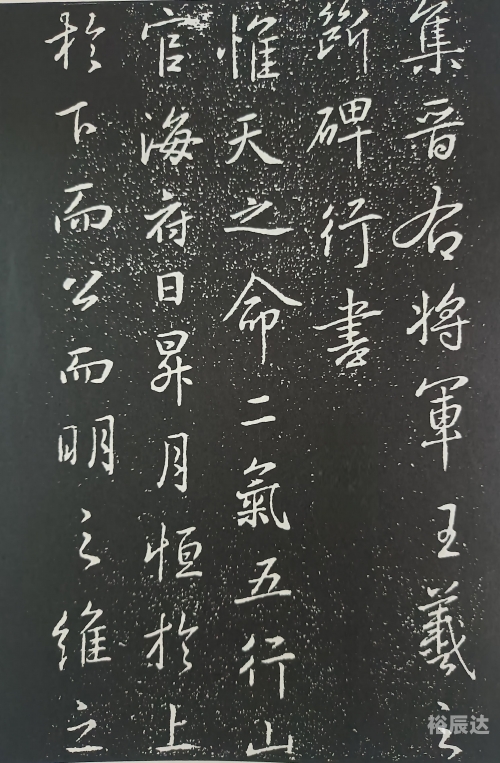 集晋右将軍王羲之
斷碑行書
惟天之命二氣五行山
官海府日昇月恒於上
於下而公而明之維之
裕辰达